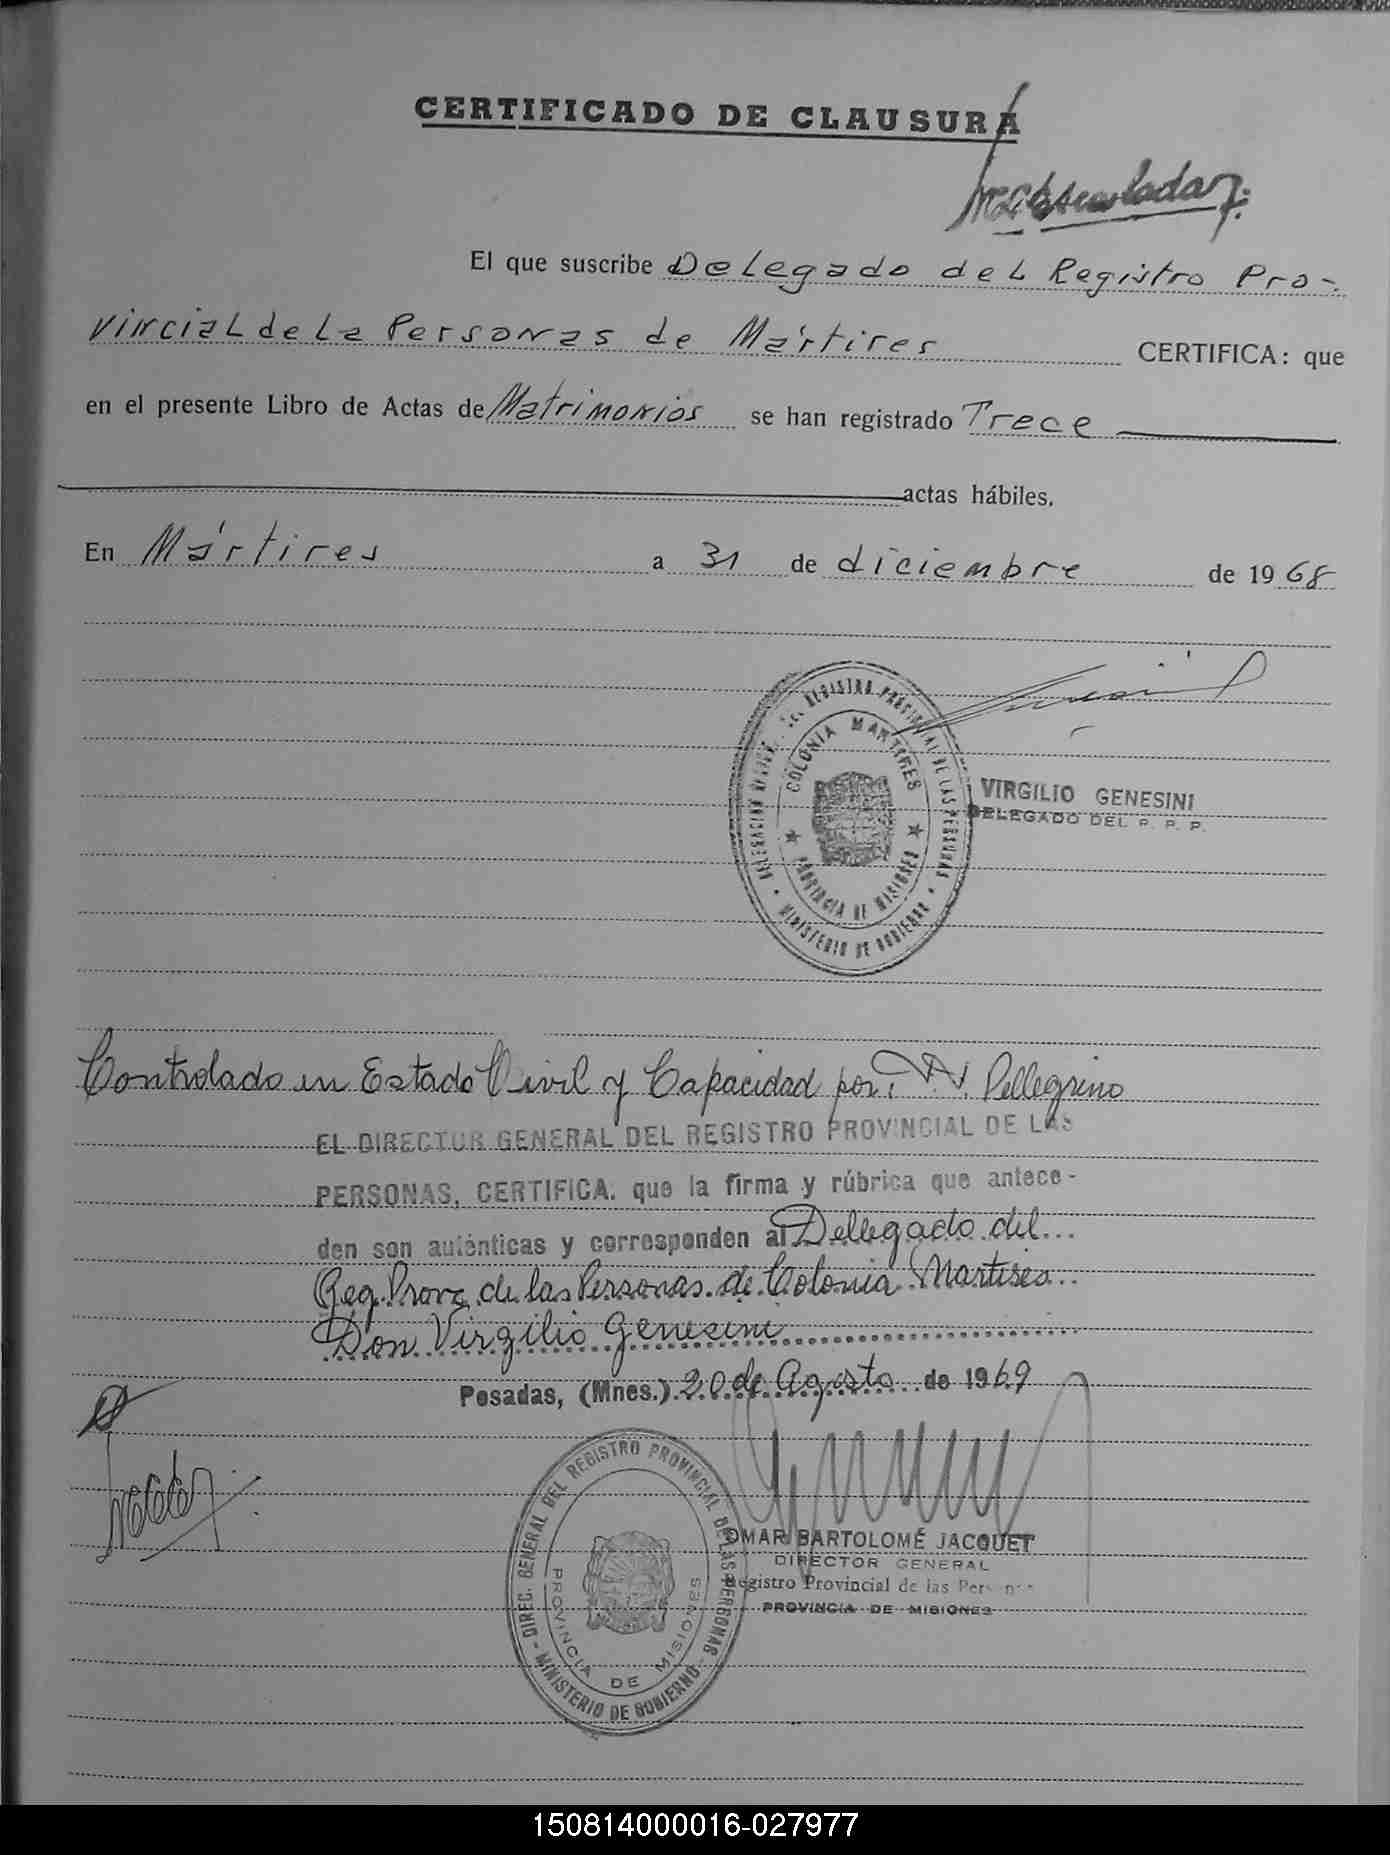 CERTIFICADO DE CLAUSURA
El que suscribe Delegado del Registro Pro-
vincial de La Personas de Mártires CERTIFICA: que
en el presente Libro de Actas de Matrimonios se han registrado Trece
actas hábiles.
En Mártires a 31 de diciembre de 1968
DEL REGISTRO PROVINCIAL DE LAS PERSONAS
COLONIA MARTIRES
PROVINCIA DE MISIONES
MINISTERIO DE GOBIERNO
VIRGILIO GENESINI
DELEGADO DEL P. P. P.
Controlado en Estado Civil y Capacidad por: N. Pellegrino
EL DIRECTOR GENERAL DEL REGISTRO PROVINCIAL DE LAS
PERSONAS, CERTIFICA: que la firma y rúbrica que antece-
den son auténticas y corresponden al Dellegado del
Reg. Prov. de las Personas de Colonia Martires
Don Virgilio Genesini
Posadas, (Mnes.) 20 de Agosto de 1969
DIREC. GENERAL DEL REGISTRO PROVINCIAL DE LAS PERSONAS
PROVINCIA DE MISIONES
MINISTERIO DE GOBIERNO
OMAR BARTOLOMÉ JACQUET
DIRECTOR GENERAL
Registro Provincial de las Personas
PROVINCIA DE MISIONES
150814000016-027977